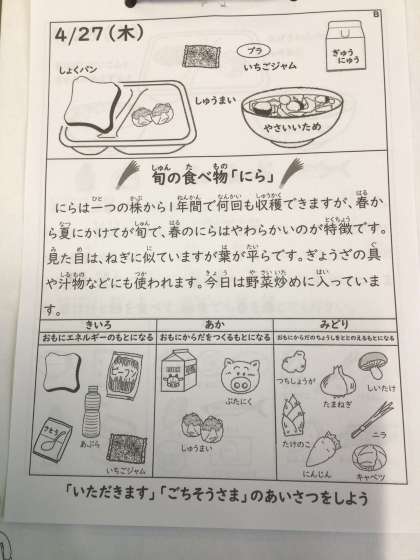 B
4/27(木)
プラ
ぎゅう
にゅう
いちごジャム
しょくパン
しゅうまい
やさいいため
旬の食べ物「にら」
にらは一つの株から1年間で何回も収穫できますが、春か
ら夏にかけてが旬で、春のにらはやわらかいのが特徴です。
見た目は、ねぎに似ていますが葉が平らです。ぎょうざの具
や汁物などにも使われます。今日は野菜炒めに入っていま
す。
きいろ
おもにエネルギーのもとになる
あか
おもにからだをつくるもとになる
みどり
おもにからだのちょうしをととのえるもとになる
ビーフン
さとう
あぶら
いちごジャム
ぶたにく
しゅうまい
つちしょうが
しいたけ
たまねぎ
たけのこ
ニラ
にんじん
キャベツ
「いただきます」「ごちそうさま」のあいさつをしよう